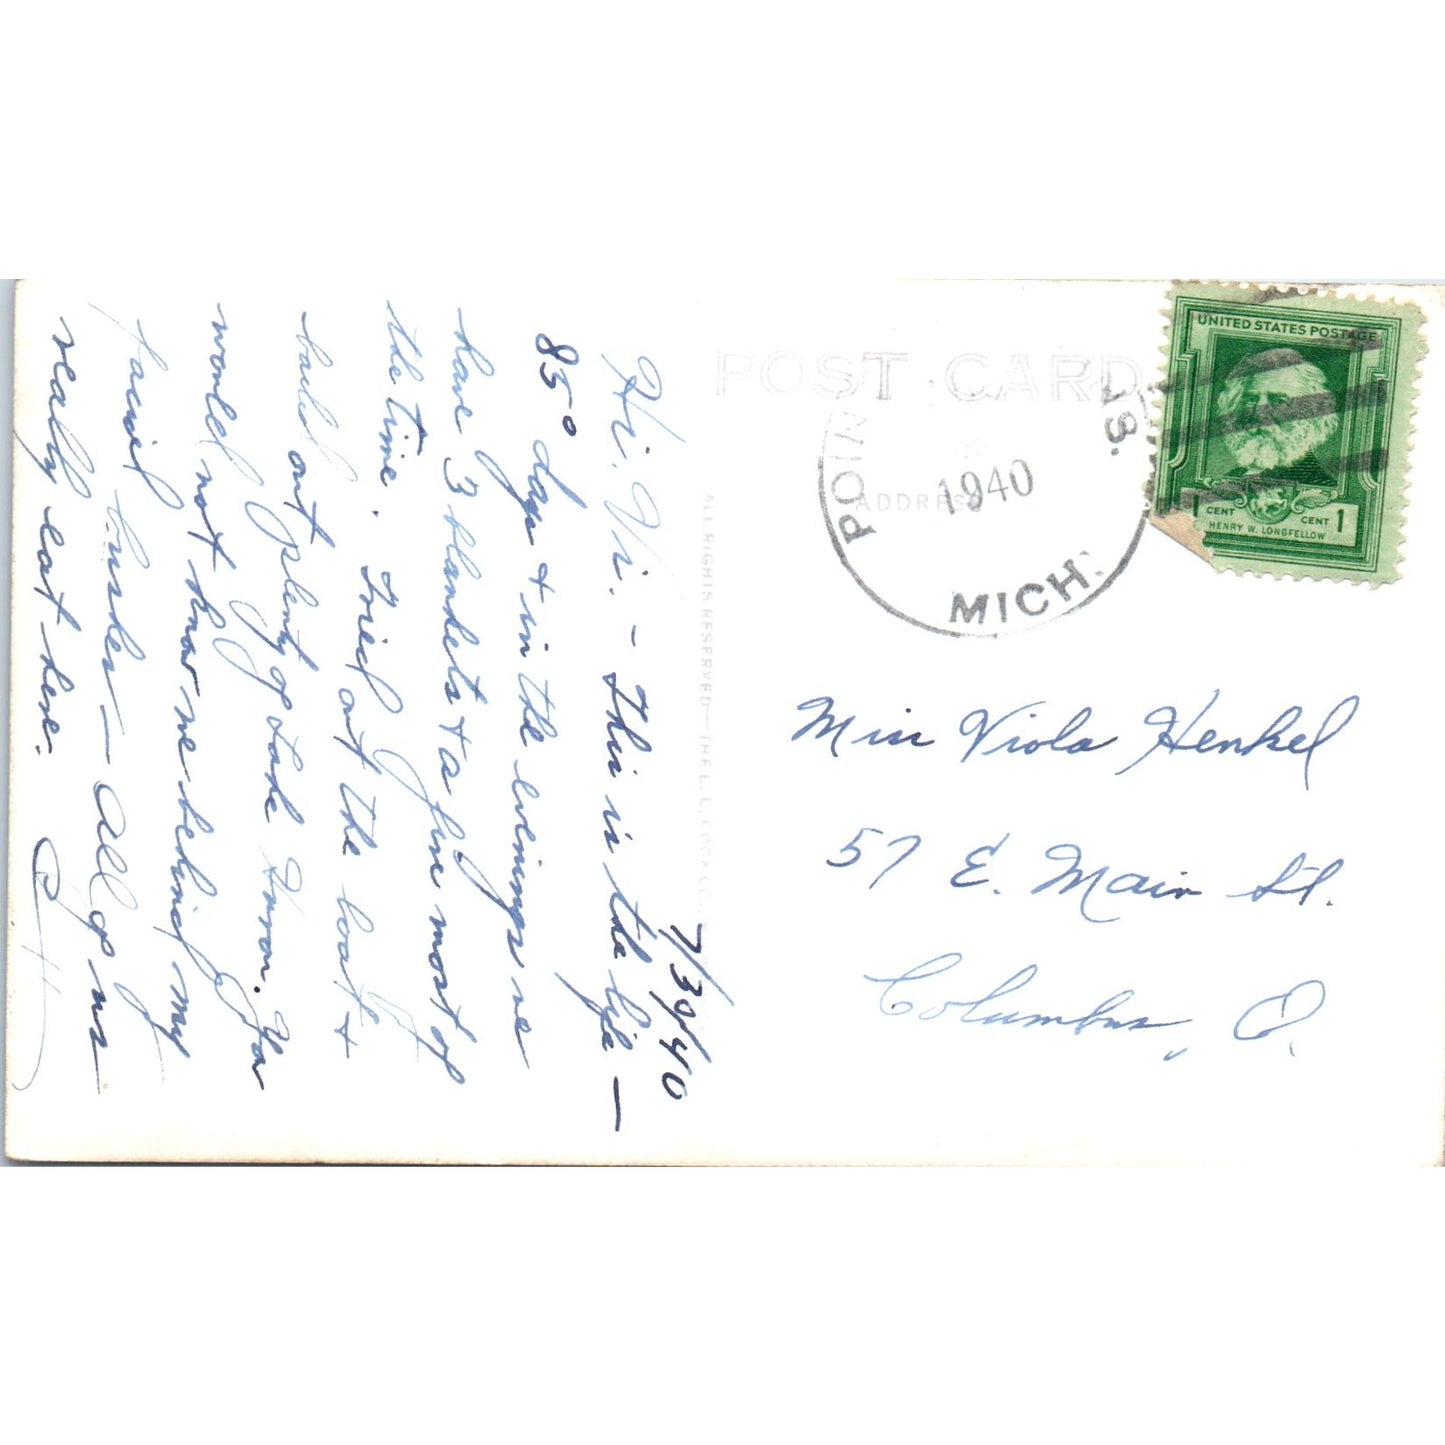 7/30/40
Hi. Vi. - This is the life -
85° day + in the evenings we
have 3 blankets + a fire most of
the time. Tried out the boat +
hauled out plenty of Lake Huron. You
would not know me behind my
facial bushes - All of us
really eat here.
POST CARD
ADDRESS
ALL RIGHTS RESERVED - THE L. L. COOK CO.
POIN
1940
MICH.
UNITED STATES POSTAGE
1 CENT CENT 1
HENRY W. LONGFELLOW
Miss Viola Henkel
57 E. Main St.
Columbus, O.